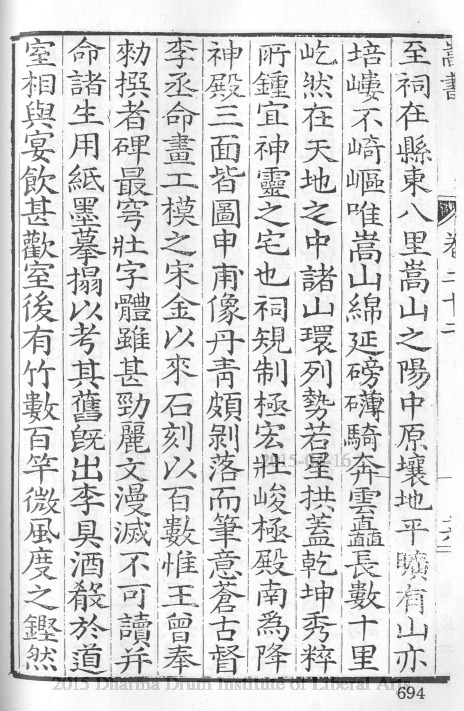 嵩書
卷二十二
至祠在縣東八里嵩山之陽中原壤地平曠有山亦
培嶁不﨑嶇唯嵩山綿延磅礴騎奔雲矗長數十里
屹然在天地之中諸山環列勢若星拱蓋乾坤秀粹
所鍾宜神靈之宅也祠䂓制極宏壯峻極殿南為降
神殿三面皆圖申甫像丹靑頗剝落而筆意蒼古督
李丞命畫工模之宋金以來石刻以百數惟王曾奉
勑撰者碑最穹壯字體雖甚勁麗文漫滅不可讀并
命諸生用紙墨摹搨以考其舊旣出李具酒殽於道
室相與宴飮甚歡室後有竹數百竿微風度之鏗然
2015-02-16
2015 Dharma Drum Institute of Liberal Arts
694